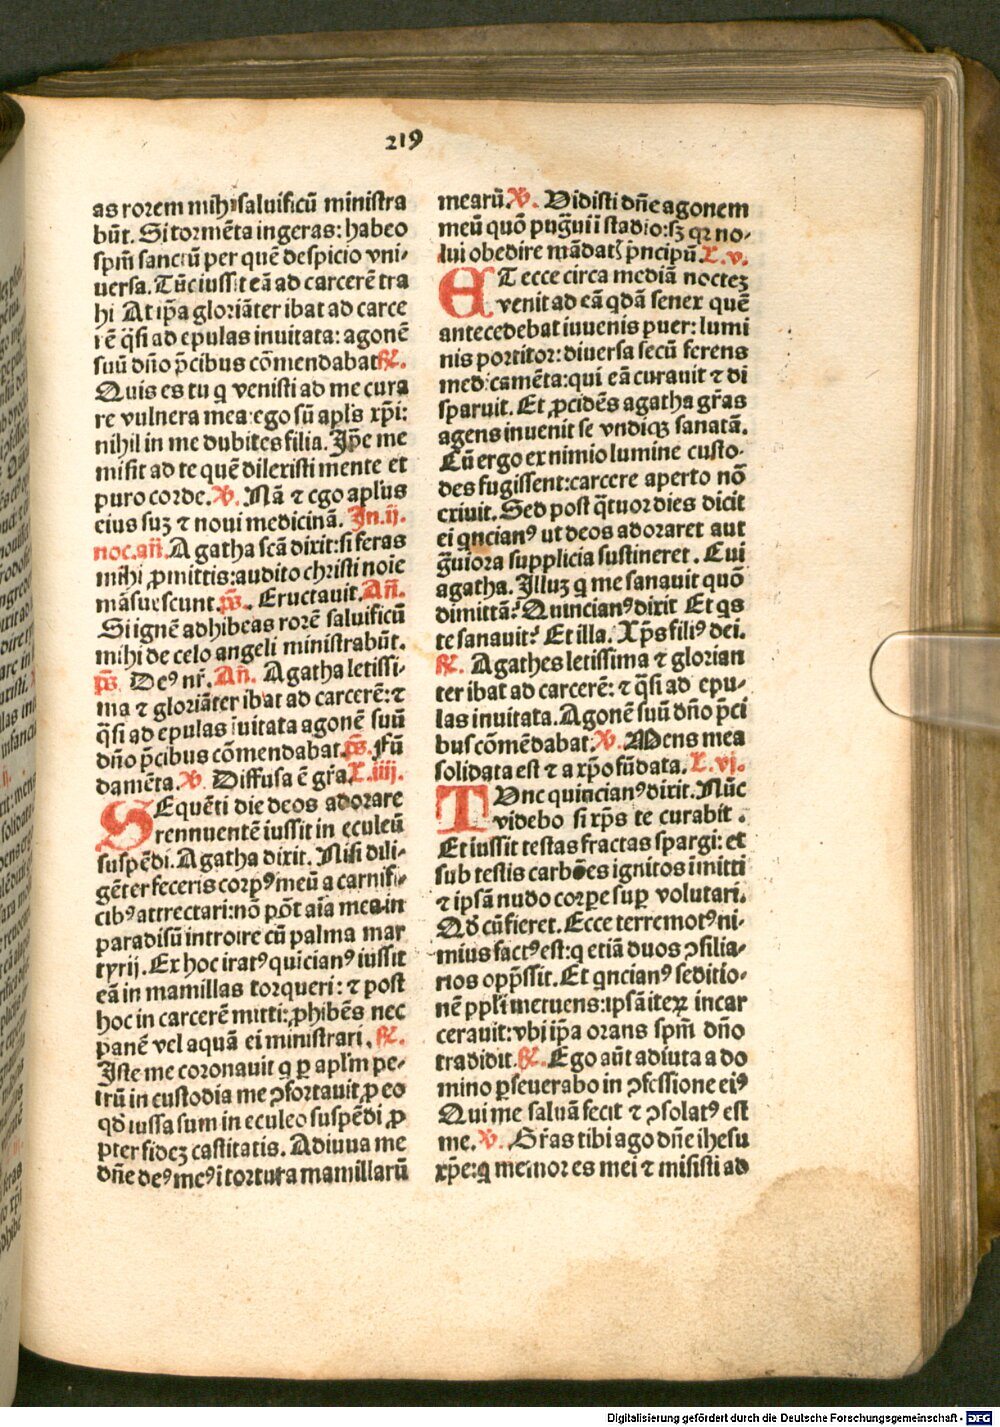 219
as rorem mihi saluificū ministra
būt. Si tormēta ingeras: habeo
spm̄ sanctū per quē despicio vni-
uersa. Tūc iussit eā ad carcerē tra
hi At ip̄a gloriāter ibat ad carce
rē q̄si ad epulas inuitata: agonē
suū dn̄o p̄cibus cōmendabat ℟.
Quis es tu q venisti ad me cura
re vulnera mea: ego sū apl's xp̄i:
nihil in me dubites filia. Ip̄e me
misit ad te quē dilexisti mente et
puro corde. ℣. Nā ⁊ ego apl'us
eius suꝫ ⁊ noui medicinā. In .ij.
noc. an̄. Agatha scā dixit: si feras
mihi ꝓmittis: audito christi noīe
māsuescunt. ps̄. Eructauit. An̄.
Si ignē adhibeas rorē saluificū
mihi de celo angeli ministrabūt.
ps̄. Deꝰ nr̄. An̄. Agatha letissi-
ma ⁊ gloriāter ibat ad carcerē: ⁊
q̄si ad epulas īuitata agonē suū
dn̄o p̄cibus cōmendabat. ps̄. Fū
damēta. ℣. Diffusa ē gr̄a. L. iiij.
SEquēti die deos adorare
rennuentē iussit in eculeū
suspēdi. Agatha dixit. Nisi dili-
gēter feceris corpꝰ meū a carnifi-
cibꝰ attrectari: nō pōt aīa mea in
paradisū introire cū palma mar
tyrij. Ex hoc iratꝰ quīcianꝰ iussit
eā in mamillas torqueri: ⁊ post
hoc in carcerē mitti: ꝓhibēs nec
panē vel aquā ei ministrari. ℟.
Iste me coronauit q ꝑ apl'm pe-
trū in custodia me ꝯfortauit ꝓ eo
qd̄ iussa sum in eculeo suspēdi ꝓ
pter fideꝫ castitatis. Adiuua me
dn̄e deꝰ meꝰ ī tortura mamillarū
mearū. ℣. Vidisti dn̄e agonem
meū quō pugūi ī stadio: sꝫ qꝛ no-
lui obedire mādatꝭ p̄ncipū. L. v.
ET ecce circa mediā nocteꝫ
venit ad eā qdā senex quē
antecedebat iuuenis puer: lumi
nis portitor: diuersa secū ferens
medicamēta: qui eā curauit ⁊ di
sparuit. Et ꝓcidēs agatha gr̄as
agens inuenit se vndiqꝫ sanatā.
Cū ergo ex nimio lumine custo-
des fugissent: carcere aperto nō
exiuit. Sed post q̄tuor dies dicit
ei qncianꝰ ut deos adoraret aut
ḡuiora supplicia sustineret. Cui
agatha. Illuꝫ q me sanauit quō
dimittā? Quincianꝰ dixit Et qs
te sanauit? Et illa. Xp̄s filiꝰ dei.
℟. Agathes letissima ⁊ glorian
ter ibat ad carcerē: ⁊ q̄si ad epu-
las inuitata. Agonē suū dn̄o p̄ci
bus cōmēdabat. ℣. Mens mea
solidata est ⁊ a xp̄o fūdata. L. vj.
TUnc quincianꝰ dixit. Nūc
videbo si xp̄s te curabit.
Et iussit testas fractas spargi: et
sub testis carbōes ignitos īmitti
⁊ ipsā nudo corpe suꝑ volutari.
Qd̄ cū fieret. Ecce terremotꝰ ni-
mius factꝰ est: q etiā duos ꝯsilia-
rios opp̄ssit. Et qncianꝰ seditio-
nē ppl'i metuens: ipsā iteꝝ incar
cerauit: vbi ip̄a orans spm̄ dn̄o
tradidit. ℟. Ego aūt adiuta a do
mino ꝑseuerabo in ꝯfessione eiꝰ
Qui me saluā fecit ⁊ ꝯsolatꝰ est
me. ℣. Gr̄as tibi ago dn̄e ihesu
xp̄e: q memor es mei ⁊ misisti ad
Digitalisierung gefördert durch die Deutsche Forschungsgemeinschaft - DFG